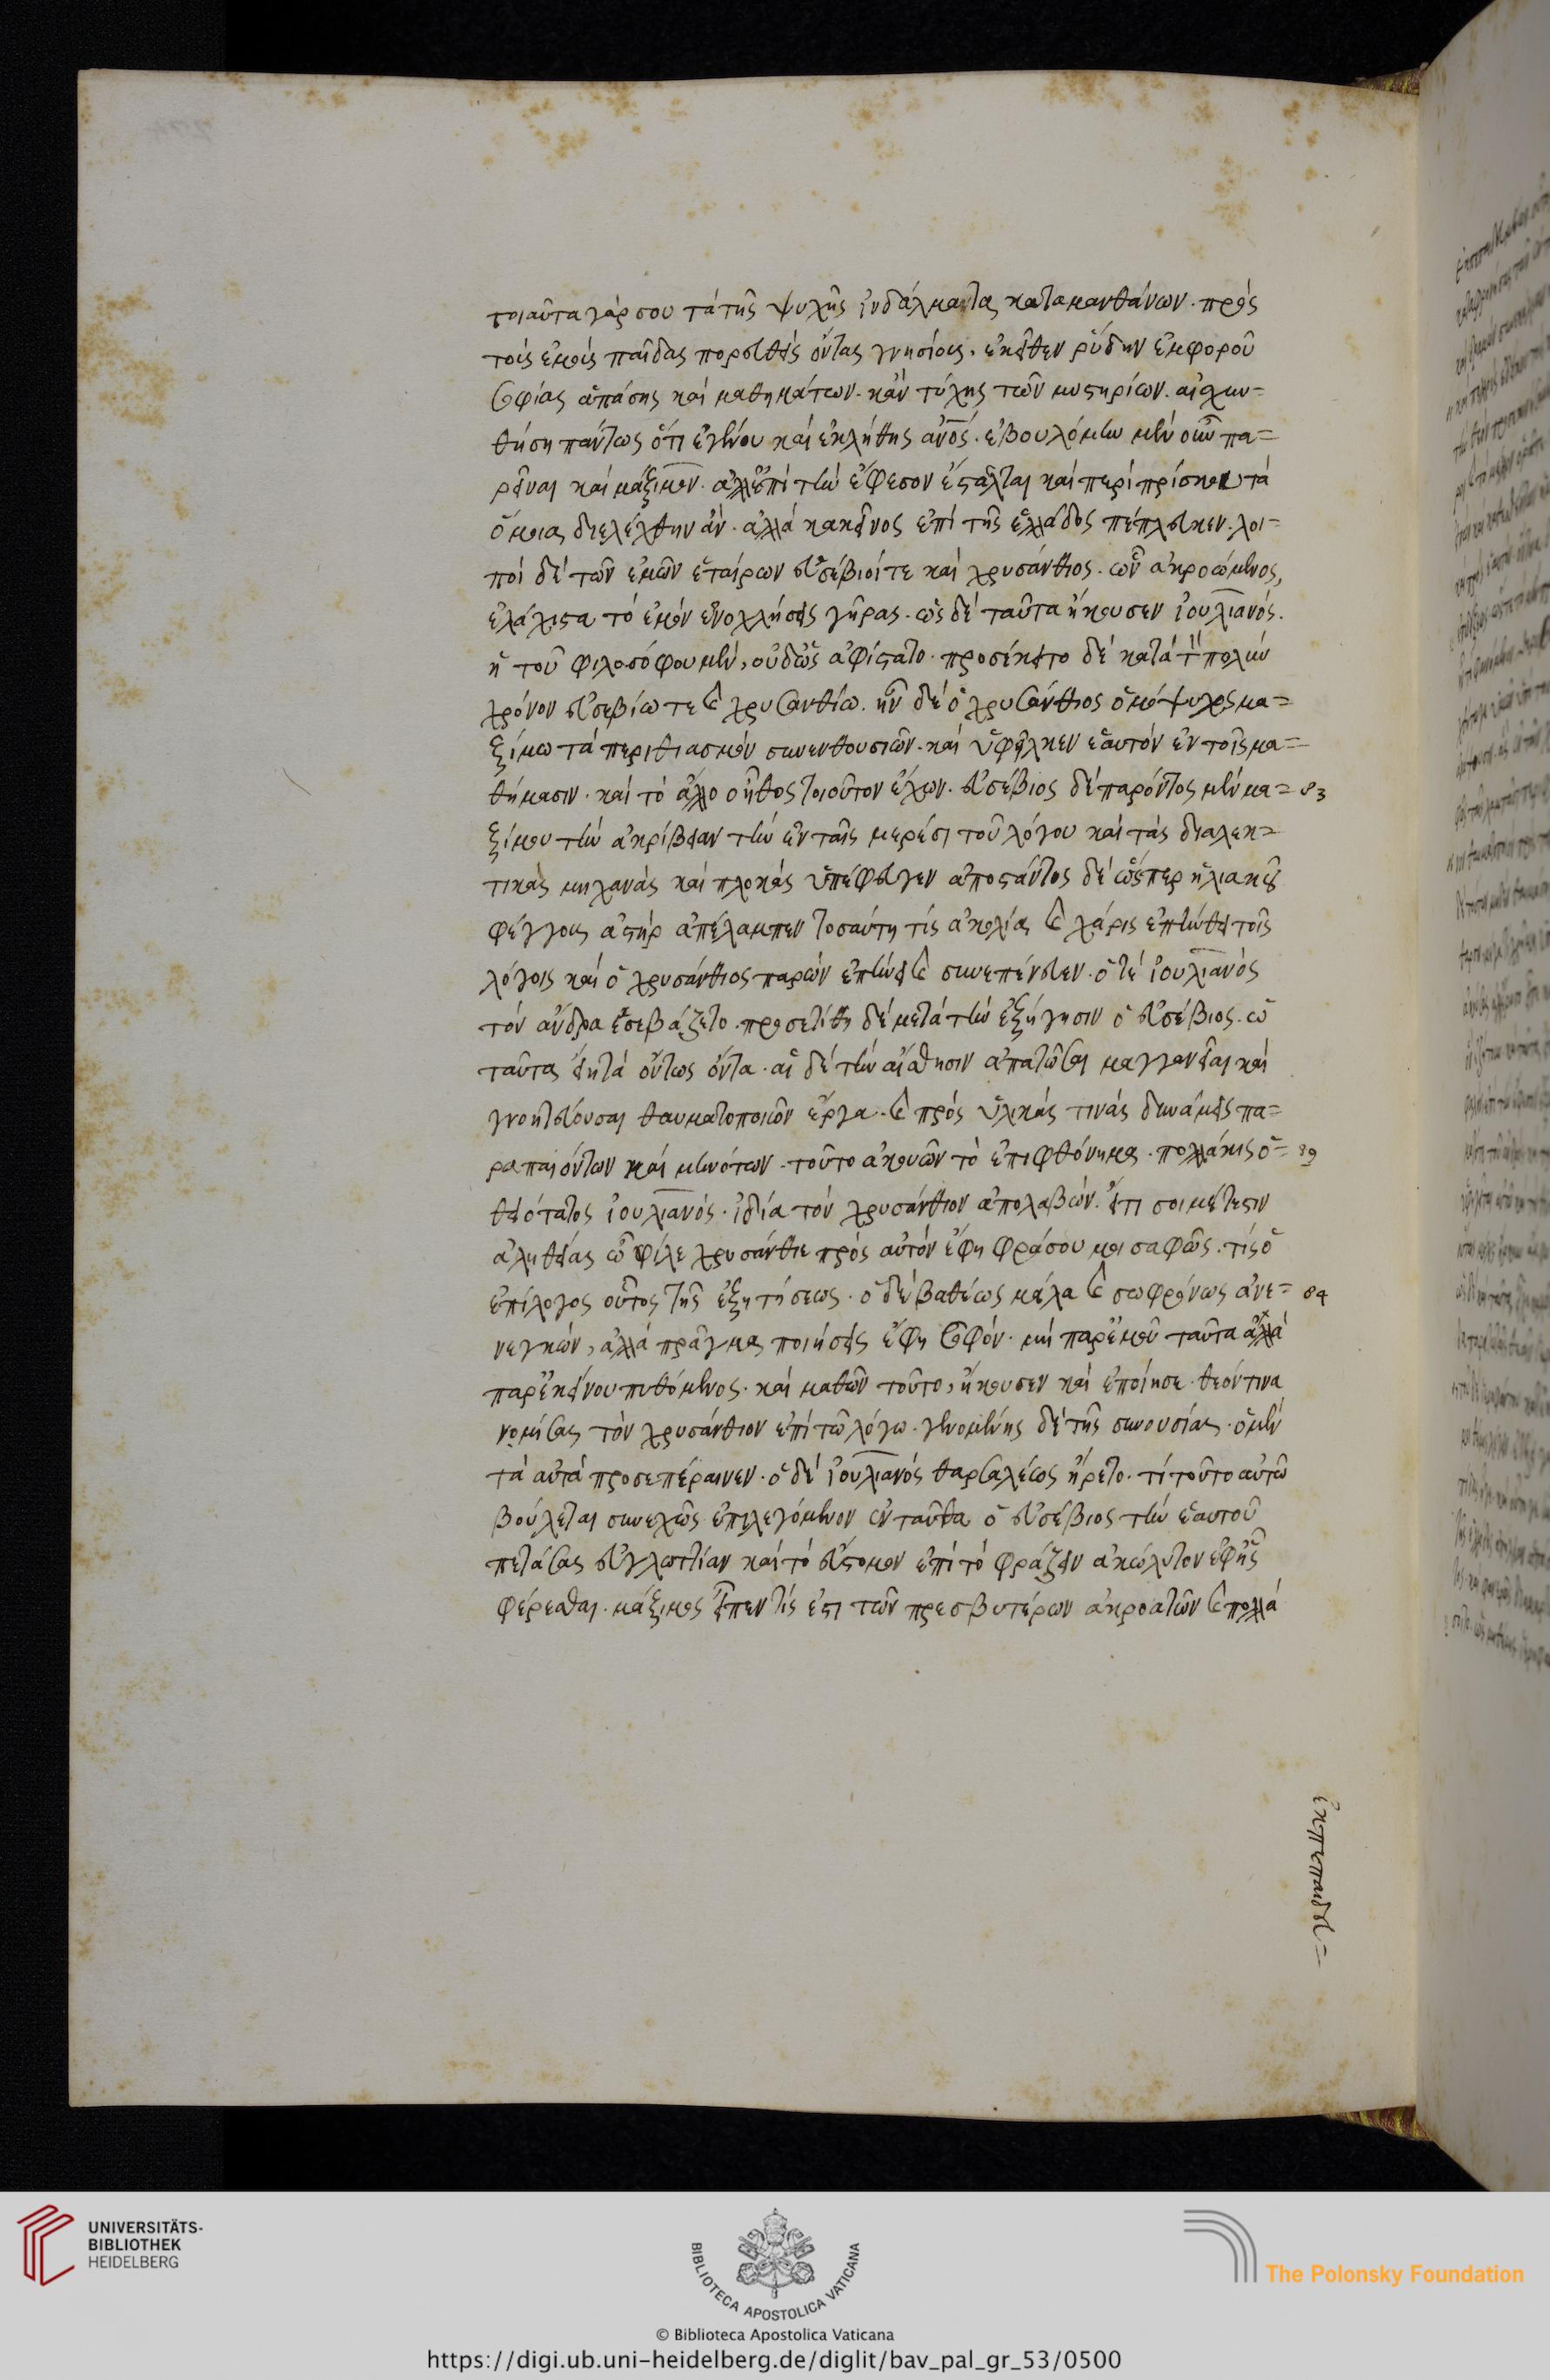 τοιαῦτα γάρ σου τὰ τῆς ψυχῆς ἰνδάλματα καταμανθάνων. πρὸς
τοὺς ἐμοὺς παῖδας πορευθεὶς ὄντας γνησίους, ἐκεῖθεν ῥύδην ἐμφοροῦ
σοφίας ἁπάσης καὶ μαθημάτων. κἂν τύχῃς τῶν μυστηρίων. αἰσχυν=
θήσῃ πάντως ὅτι ἐγένου καὶ ἐκλήθης ἄνος. ἐβουλόμην μὲν οὖν πα=
ρεῖναι καὶ μάξιμον. ἀλλ' ἐπὶ τὴν ἔφεσον ἔσταλται καὶ περὶ πρίσκου τὰ
ὅμοια διελέχθην ἄν. ἀλλὰ κἀκεῖνος ἐπὶ τῆς ἑλλάδος πέπλευκεν. λοι=
ποὶ δὲ τῶν ἐμῶν ἑταίρων εὐσέβιοί τε καὶ χρυσάνθιος. ὧν ἀκροώμενος,
ἐλάχιστα τὸ ἐμὸν ἐνοχλήσεις γῆρας. ὡς δὲ ταῦτα ἤκουσεν ἰουλιανός.
ἢ τοῦ φιλοσόφου μὲν, οὐδ' ὣς ἀφίστατο. προσέκειτο δὲ κατὰ τ πολὺν
χρόνον εὐσεβίω τε καὶ χρυσανθίω. ἦν δὲ ὁ χρυσάνθιος ὁμόψυχος μα=
ξίμω τὰ περὶ θιασμὸν συνενθουσιῶν. καὶ ὑφεῖλκεν ἑαυτὸν ἐν τοῖς μα=
θήμασιν. καὶ τὸ ἄλλο ἦθος τοιοῦτον ἔχων. εὐσέβιος δὲ παρόντος μὲν μα= 83
ξίμου τὴν ἀκρίβειαν τὴν ἐν ταῖς μερέσι τοῦ λόγου καὶ τὰς διαλεκ=
τικὰς μηχανὰς καὶ πλοκὰς ὑπέφευγεν ἀποστάντος δὲ ὥσπερ ἡλιακοῦ
φέγγους ἀστὴρ ἀπέλαμπεν τοσαύτη τίς καὶ χάρις ἐπήνθει τοῖς
λόγοις καὶ ὁ χρυσάνθιος παρὼν ἐπήνει καὶ συνεπένευεν. ὅ τε ἰουλιανὸς
τὸν ἄνδρα ἐσεβάζετο. προσετίθη δὲ μετὰ τὴν ἐξήγησιν ὁ εὐσέβιος. ὡ
ταῦτα εἴη τὰ ὄντως ὄντα. αἱ δὲ τὴν αἴσθησιν ἀπατῶσαι μαγγανεῖαι καὶ
γνοητεύουσαι θαυματοποιῶν ἔργα. καὶ πρὸς ὑλικάς τινάς δυνάμεις πα=
ραπαιόντων καὶ μενότων. τοῦτο ἀκουῶν τὸ ἐπιφθόνημα. πολλάκις ὁ= 89
θειότατος ἰουλιανός. ἰδία τὸν χρυσάνθιον ἀπολαβών. εἴ τι σοι μέτεστιν
ἀληθείας ὦ φίλε χρυσάνθιε πρὸς αὐτὸν ἔφη φράσου μοι σαφῶς. τίς ὁ
ἐπίλογος οὗτος τῆς ἐξητήσεως. ὁ δὲ βαθέως μάλα καὶ σωφρόνως ἀνε= 84
νεγκών, ἀλλὰ πρᾶγμα ποιήσεις ἔφη σοφόν. μὴ παρ' ἐμοῦ ταῦτα ἀλλὰ
παρ' ἐκείνου πυθόμενος. καὶ μαθῶν τοῦτο, ἤκουσεν καὶ ἐποίησε. θεόν τινα
νομίσας τὸν χρυσάνθιον ἐπὶ τῶ λόγω. γενομένης δὲ τῆς συνουσίας. ὁ μὲν
τὰ αὐτὰ προσεπέραινεν. ὁ δὲ ἰουλιανὸς θαρσαλέως ἤρετο. τί τοῦτο αὐτῶ
βούλεται συνεχῶς ἐπιλεγόμενον ἐνταῦθα ὁ εὐσέβιος τὴν ἑαυτοῦ
πετάσας εὐγλωττίαν καὶ τὸ εὔστομον ἐπὶ τὸ φράζειν ἀκώλυτον ἐφῆς
φέρεσθαι. μάξιμος εἶπεν τίς ἐστι τῶν πρεσβυτέρων ἀκροατῶν καὶ πολλὰ
ἐκπεπαιδευ=
UNIVERSITÄTS-
BIBLIOTHEK
HEIDELBERG
BIBLIOTECA APOSTOLICA VATICANA
The Polonsky Foundation
© Biblioteca Apostolica Vaticana
https://digi.ub.uni-heidelberg.de/diglit/bav_pal_gr_53/0500